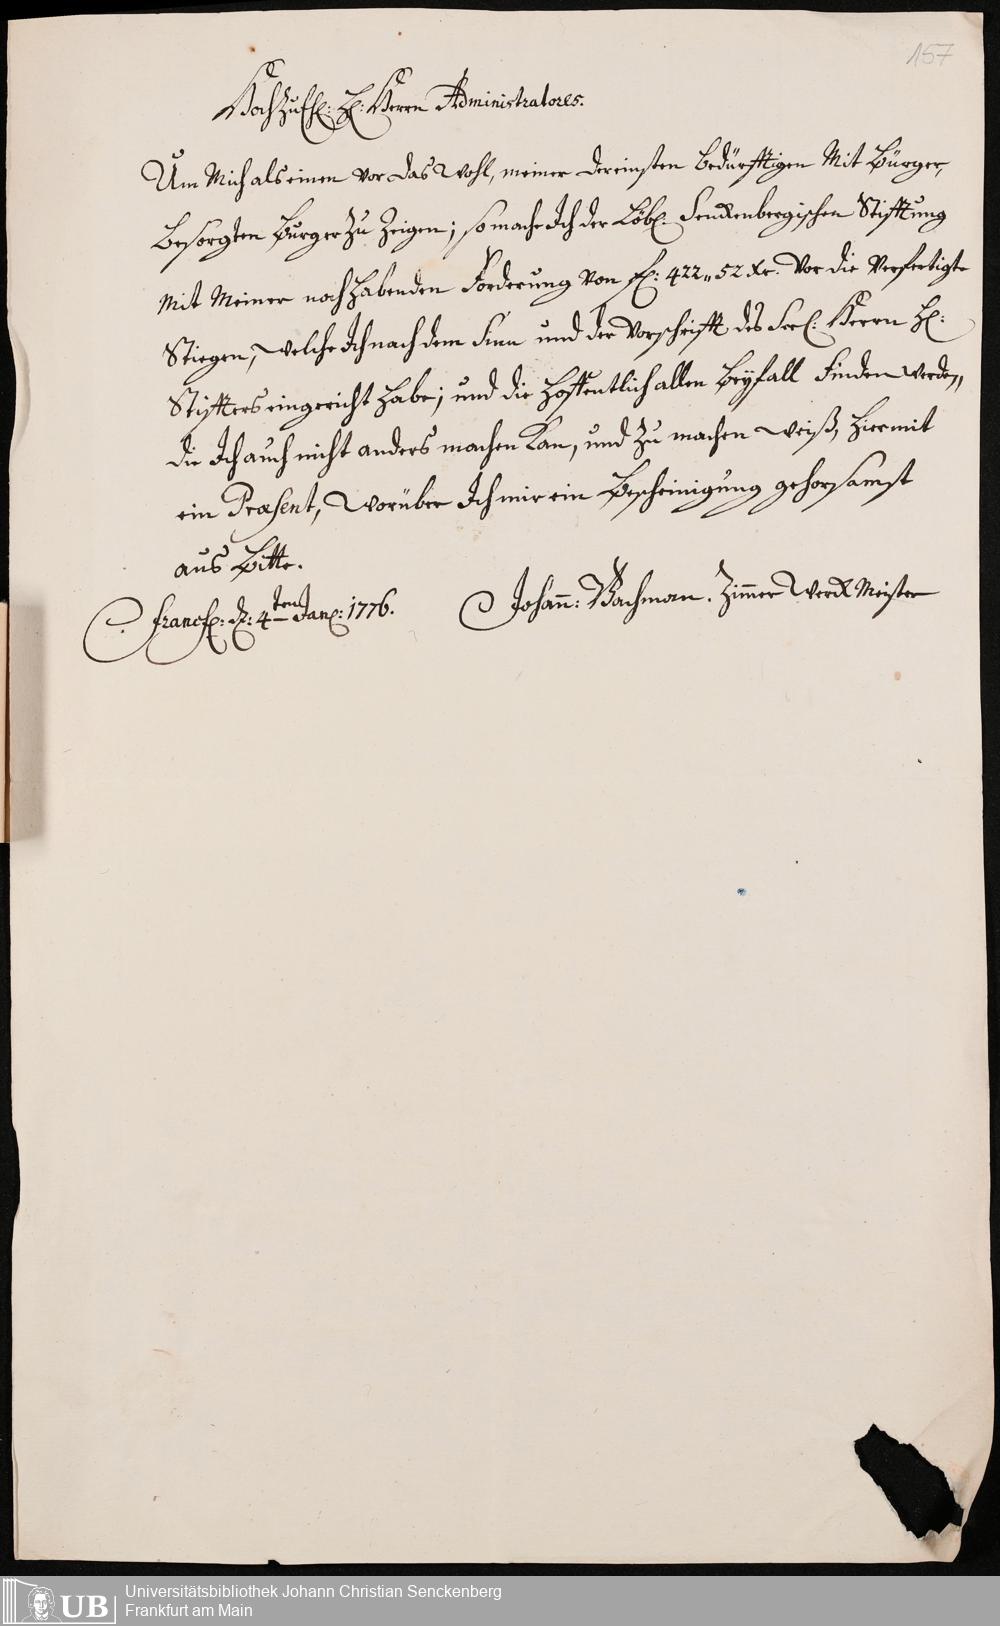 157
HochzuEh: H: Herrn Administratores.
Um Mich als einen vor das Wohl, meiner dereinsten bedürfftigen Mit Bürger,
besorgten Burger zu Zeigen; so mache Ich der Löbl. Senckenbergischen Stifftung
Mit Meiner noch habenden Forderung von f: 422,, 52 Xr. Vor die Verfertigte
Stiegen, welche Ich nach dem Sinn und der Vorschrifft des Seel: Herrn H:
Stiffters eingericht habe; und die hoffentlich allen Beÿfall Finden werden,,
die Ich auch nicht anders machen Kan, und zu machen weiß, hiermit
ein Præsent, worüber Ich mir ein Bescheinigung gehorsamst
aus Bitte.
Francf: d: 4ten Jan: 1776.
Johann: Bachman. Zimmer Werck Meister
UB
Universitätsbibliothek Johann Christian Senckenberg
Frankfurt am Main